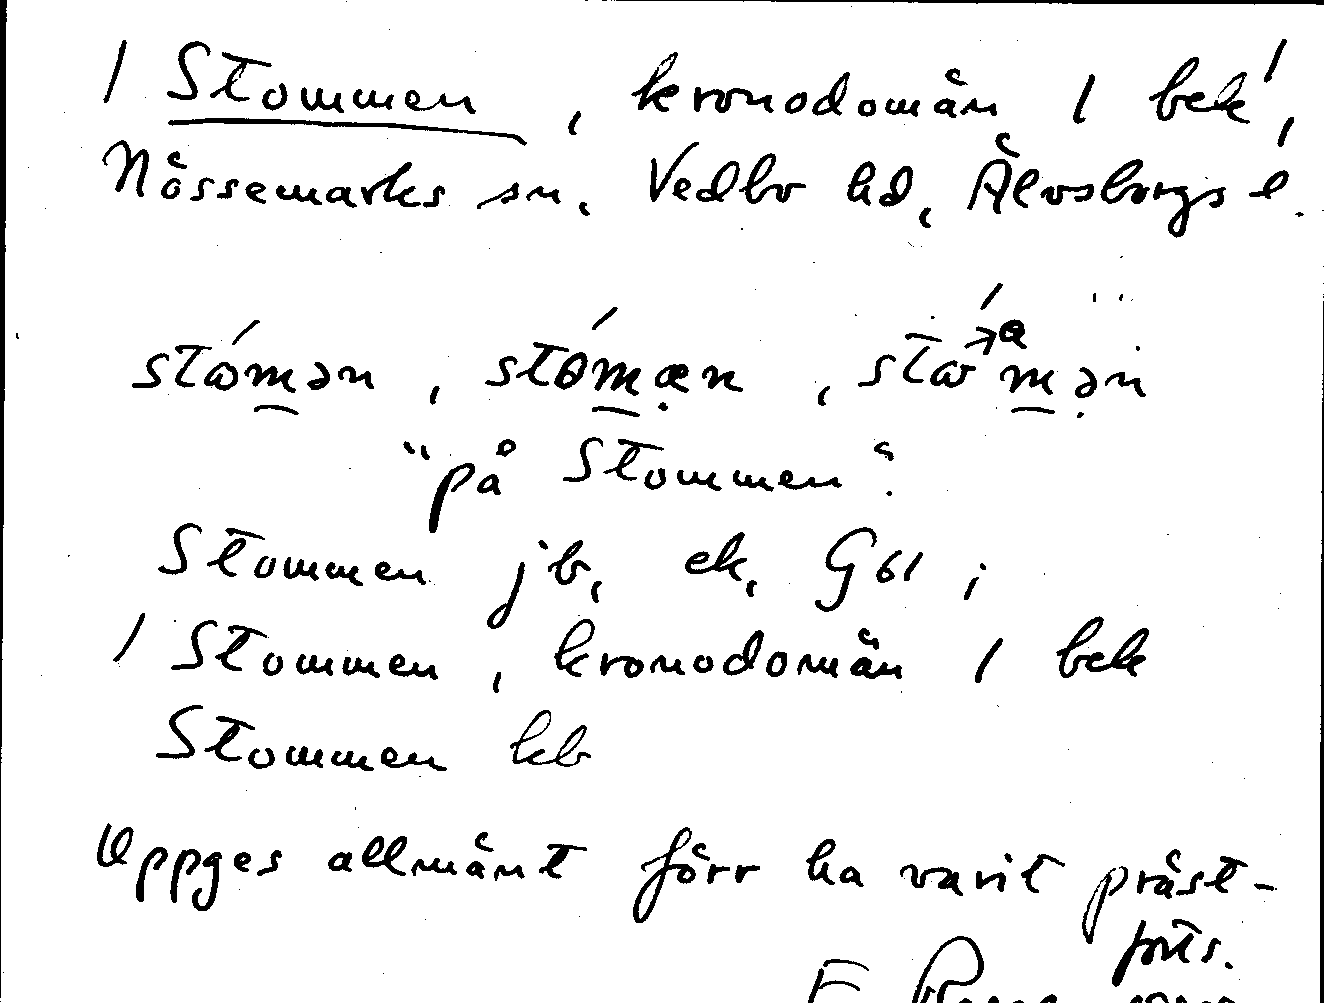 1 Stommen, kronodomän 1 bek',
Nössemarks sn, Vedbo hd, Älvsborgs l.
stómən, stómæn, stómən
"på Stommen".
Stommen jb, ek, G61;
1 Stommen, kronodomän 1 bek
Stommen kb
Uppges allmänt förr ha varit präst-
forts.